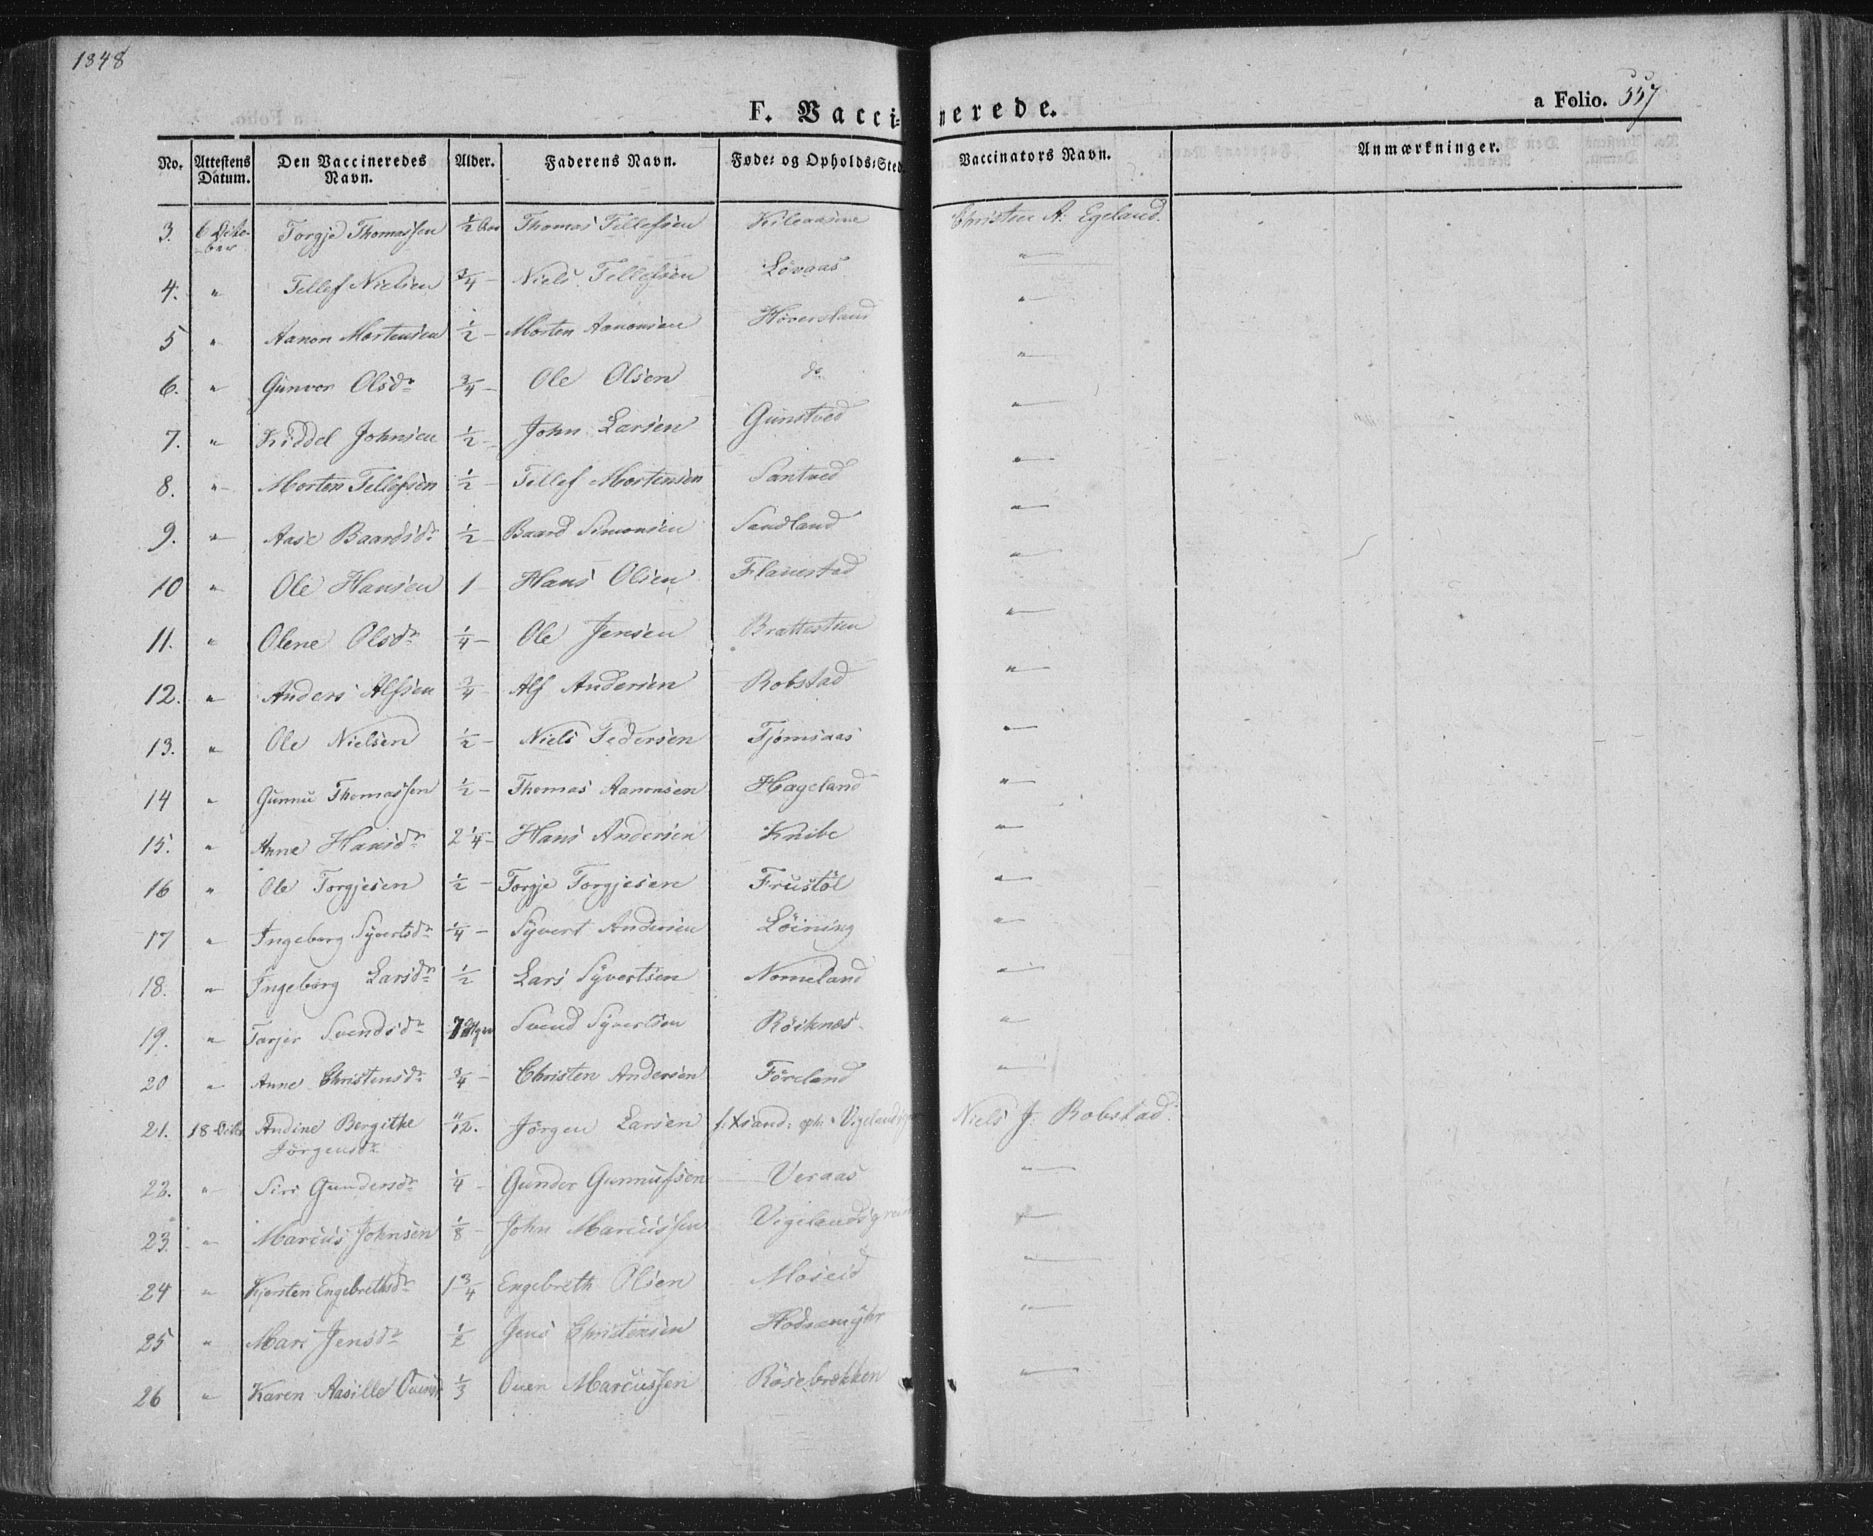 1848
F. Vaccinerede.
a Folio. 557
No. Attestens Datum. Den Vaccineredes Navn. Alder. Faderens Navn. Føde- og Opholds-Sted. Vaccinators Navn. Anmærkninger.
3. 6 Octo-ber Torgje Thomassen ½ Thomas Tellefsen Kileaasene Christen A. Egeland.
4. " Tellef Nielsen ¾ — Niels Tellefsen Lövaas "
5 " Aanon Mortensen ½ — Morten Aanonsen Höversland "
6. " Gunvor Olsdr ¾ — Ole Olsen do. "
7. " Kiddel Johnsen ½ — John Larsen Gunstved "
8. " Morten Tellefsen ½ — Tellef Mortensen Santved "
9. " Aase Baardsdr ½ — Baard Simonsen Sandland "
10 " Ole Hansen 1 Hans Olsen Flanestad "
11. " Olene Olsdr ¼ — Ole Jensen Brattesteen "
12. " Anders Alfsen ¾ — Alf Andersen Robstad "
13. " Ole Nielsen ½ — Niels Pedersen Tjomsaas "
14 " Gunnu Thomassen ½ — Thomas Aanonsen Hageland "
15. " Anne Hansdr 2¼ — Hans Andersen Knibe "
16 " Ole Torgjesen ½ — Torgje Torgjesen Frustöl "
17 " Ingeborg Syvertsdr ¼ — Syvert Andersen Löining "
18. " Ingeborg Larsdr ½ Lars Syvertsen Nomeland "
19. " Torjer Svendsdr 7 Svend Syvertsen Röiknes "
20 " Anne Christensdr ¾ — Christen Andersen Föreland "
21. 18 Octbr Andine Bergithe 11/12. Jörgen Larsen f. Xsand: oph: Vigeland Niels J. Robstad.
Jörgensdr
22. " Siri Gundersdr ¼ — Gunder Gunnufsen Veraas "
23. " Marcus Johnsen ⅛ — John Marcussen Vigelands "
24 " Kjersten Engebrethsdr 1¾ Engebreth Olsen Moseid "
25 " Mari Jensdr ½ Jens Christensen Hodnemyhr "
26 " Karen Aasille Ouensdr ⅓ Ouen Marcussen Rösebrekken "